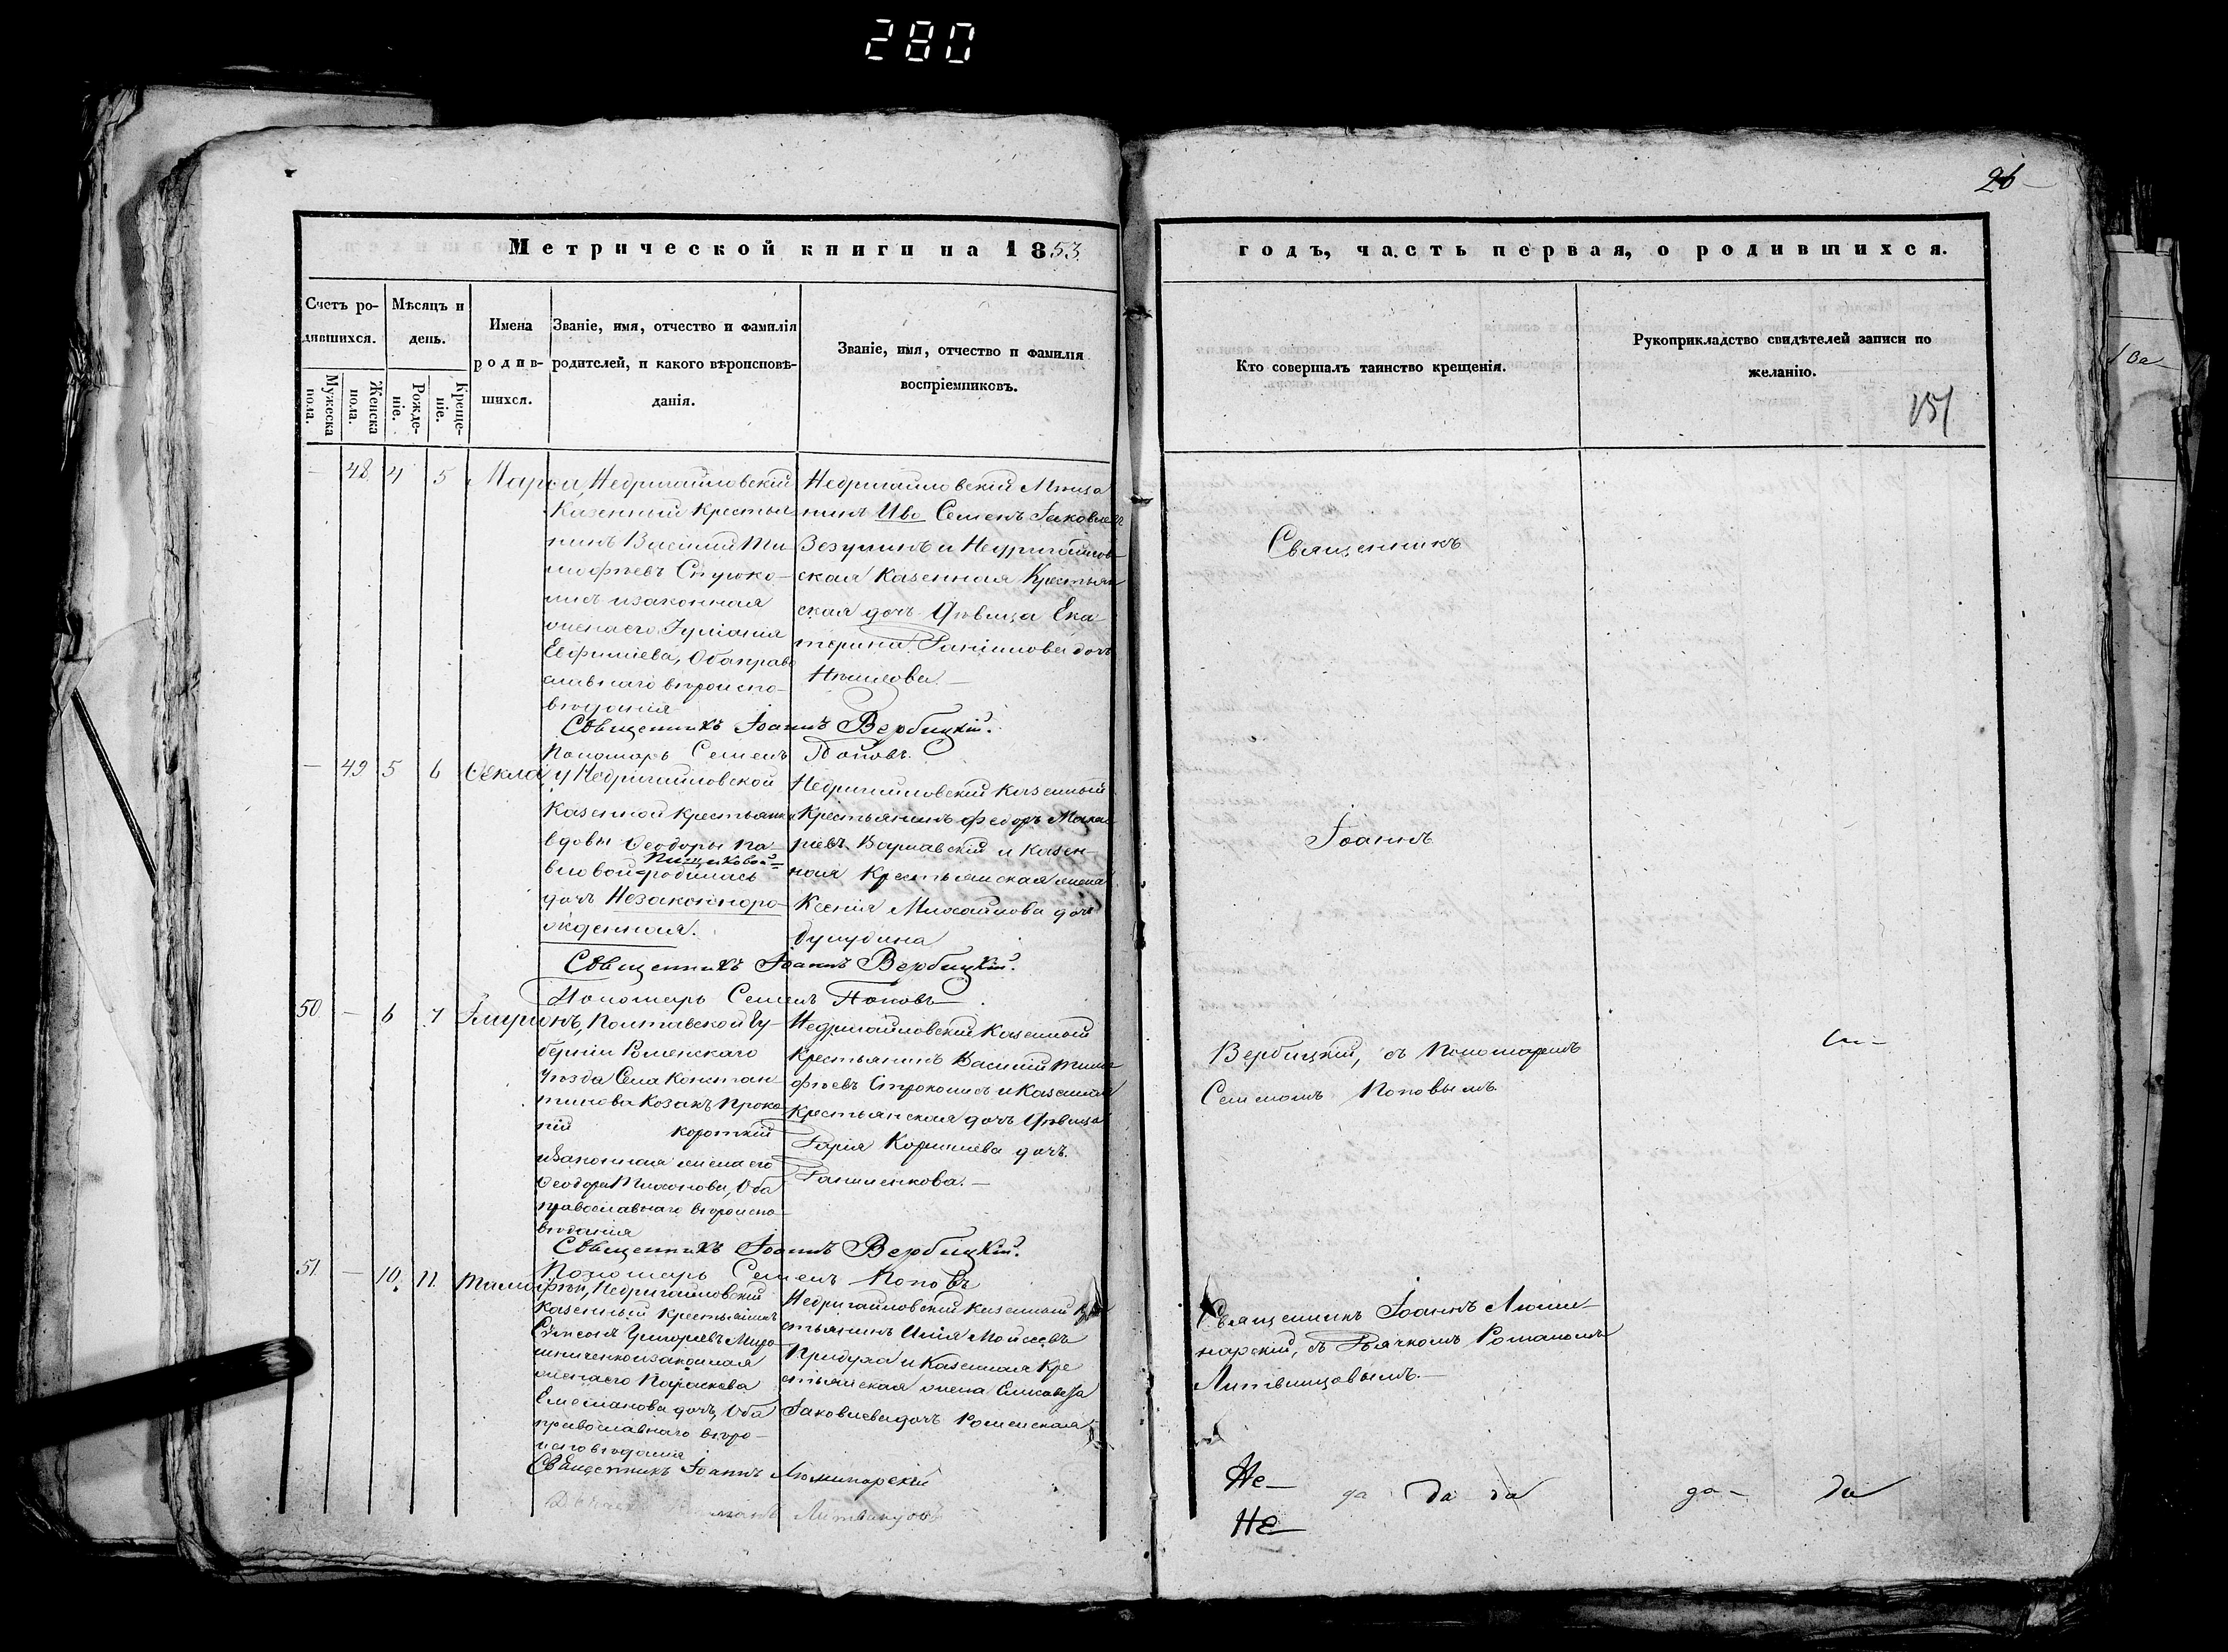 280
26
Метрической книги на 1853
годъ, часть первая, о родившихся.
Счетъ ро-
дившихся.
Мужеска
пола.
Женска
пола.
Мѣсяцъ и
день.
Рожде-
ніе.
Креще-
ніе.
Имена
родив-
шихся.
Званіе, имя, отчество и фамилія
родителей, и какого вѣроисповѣ-
данія.
Званіе, имя, отчество и фамилія
воспріемниковъ.
Кто совершалъ таинство крещенія.
Рукоприкладство свидѣтелей записи по
желанію.
151
— 48 4 5
Недригайловскій
Казенный Крестья
нинъ Василій Ти-
мофѣевъ
изаконная
жена его
Обаправо
славнаго вѣроиспо-
вѣданія
Недригайловскій Мѣща
нинъ Семенъ Яковлев
и Недригайлов-
ская Казенная Крестьян
ская дочь Дѣвица Ека
терина дочь
Священникъ Іоаннъ Вербицкій.
Пономарь Семенъ Поповъ.
— 49 5 6 Ѳекла, у Недригайловской
Казенной Крестьянки
вдовы Ѳеодоры Па-
вловой родилась
дочь Незаконноро-
жденная.
Недригайловскій Казенный
Крестьянинъ Федоръ Мака
ріевъ Варшавскій и Казен-
ная Крестьянская жена
Ксенія Михайлова дочь
Священникъ Іоаннъ Вербицкій.
Пономарь Семенъ Поповъ
50 — 6 7
Полтавской Гу-
берніи Роменскаго
Уѣзда Села Констан-
тинова Козакъ Проко
пій Короткій
изаконная жена его
Ѳеодора Тихонова, Оба
православнаго вѣроиспо-
вѣданія
Недригайловскій Казенный
Крестьянинъ Василій Тимо
фѣевъ и Казенная
Крестьянская дочь Дѣвица
дочь
Священникъ Іоаннъ Вербицкій.
Пономарь Семенъ Поповъ
51 — 10. 11. Тимофѣй, Недригайловскій
Казенный Крестьянинъ
Григорьевъ Миро
шниченко изаконная
жена его Параскева
Емеліанова дочь, Оба
православнаго вѣро-
исповѣданія
Недригайловскій Казенный Кре
стьянинъ Илія Моисеевъ
Придуха и Казенная Кре
стьянская жена Елисавета
Яковлева дочь Роменская
Священникъ Іоаннъ
Романъ Литвинцовъ
Священникъ
Іоаннъ
Вербицкій, съ Пономаремъ
Семеномъ Поповымъ.
Священникъ Іоаннъ
съ Дьячкомъ Романомъ
Литвинцовымъ.
Не да да да да да
Не